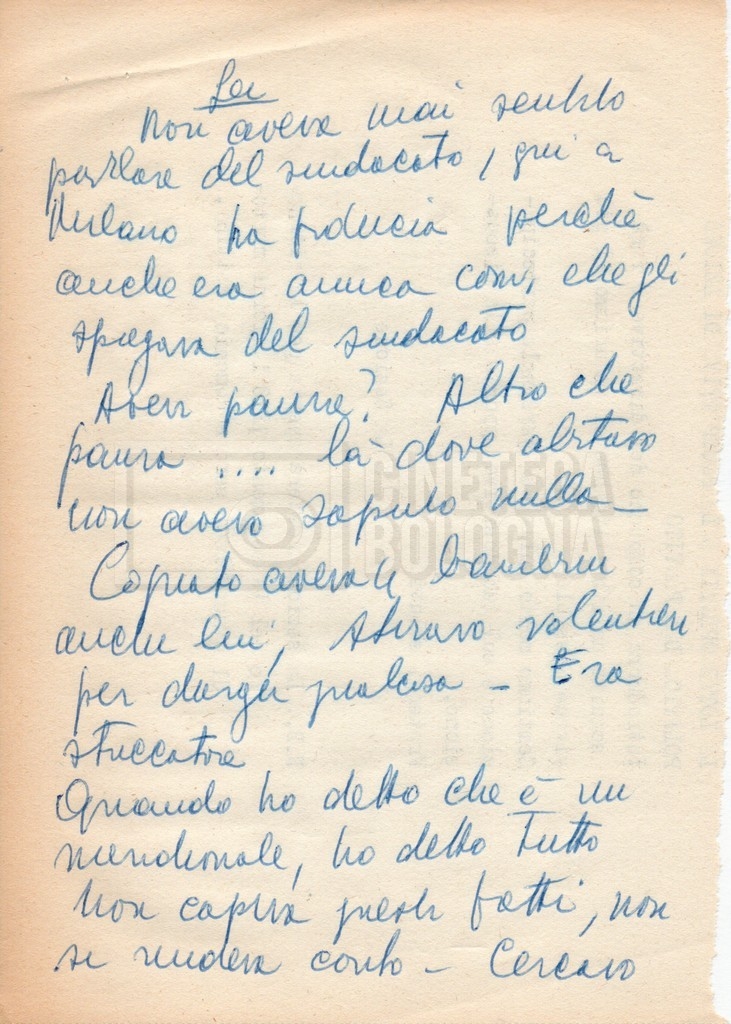 Lei
Non aveva mai sentito
parlare del sindacato, qui a
Milano ha fiducia perchè
anche era amica con, che gli
spiegava del sindacato
Aver paura? Altro che
paura .... là dove abitavo
non avevo saputo nulla -
CINETECA
BOLOGNA
Cognato aveva bambini
anche lui, stiravo volentieri
per dargli qualcosa - Era
stuccatore
Quando ho detto che è un
meridionale, ho detto tutto
Non capiva questi fatti, non
si rendeva conto - Cercavo